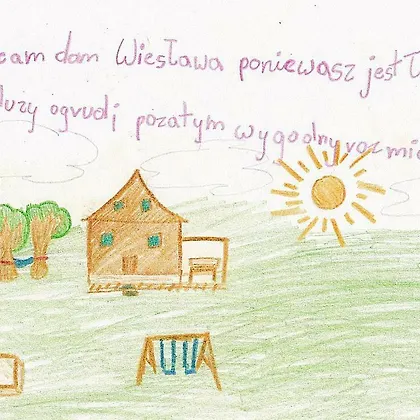 cam dom Wiesława ponieważ jest
duży ogrudj pozatym wygodny roz